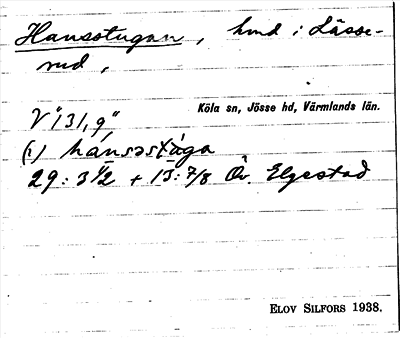 Hansstugan, hmd i Lässe-
rud,
Köla sn, Jösse hd, Värmlands län.
V"131,9"
(i) hánsəstùga
29: 3 1/2 + 15: 7/8 Öv. Elgestad
ELOV SILFORS 1938.